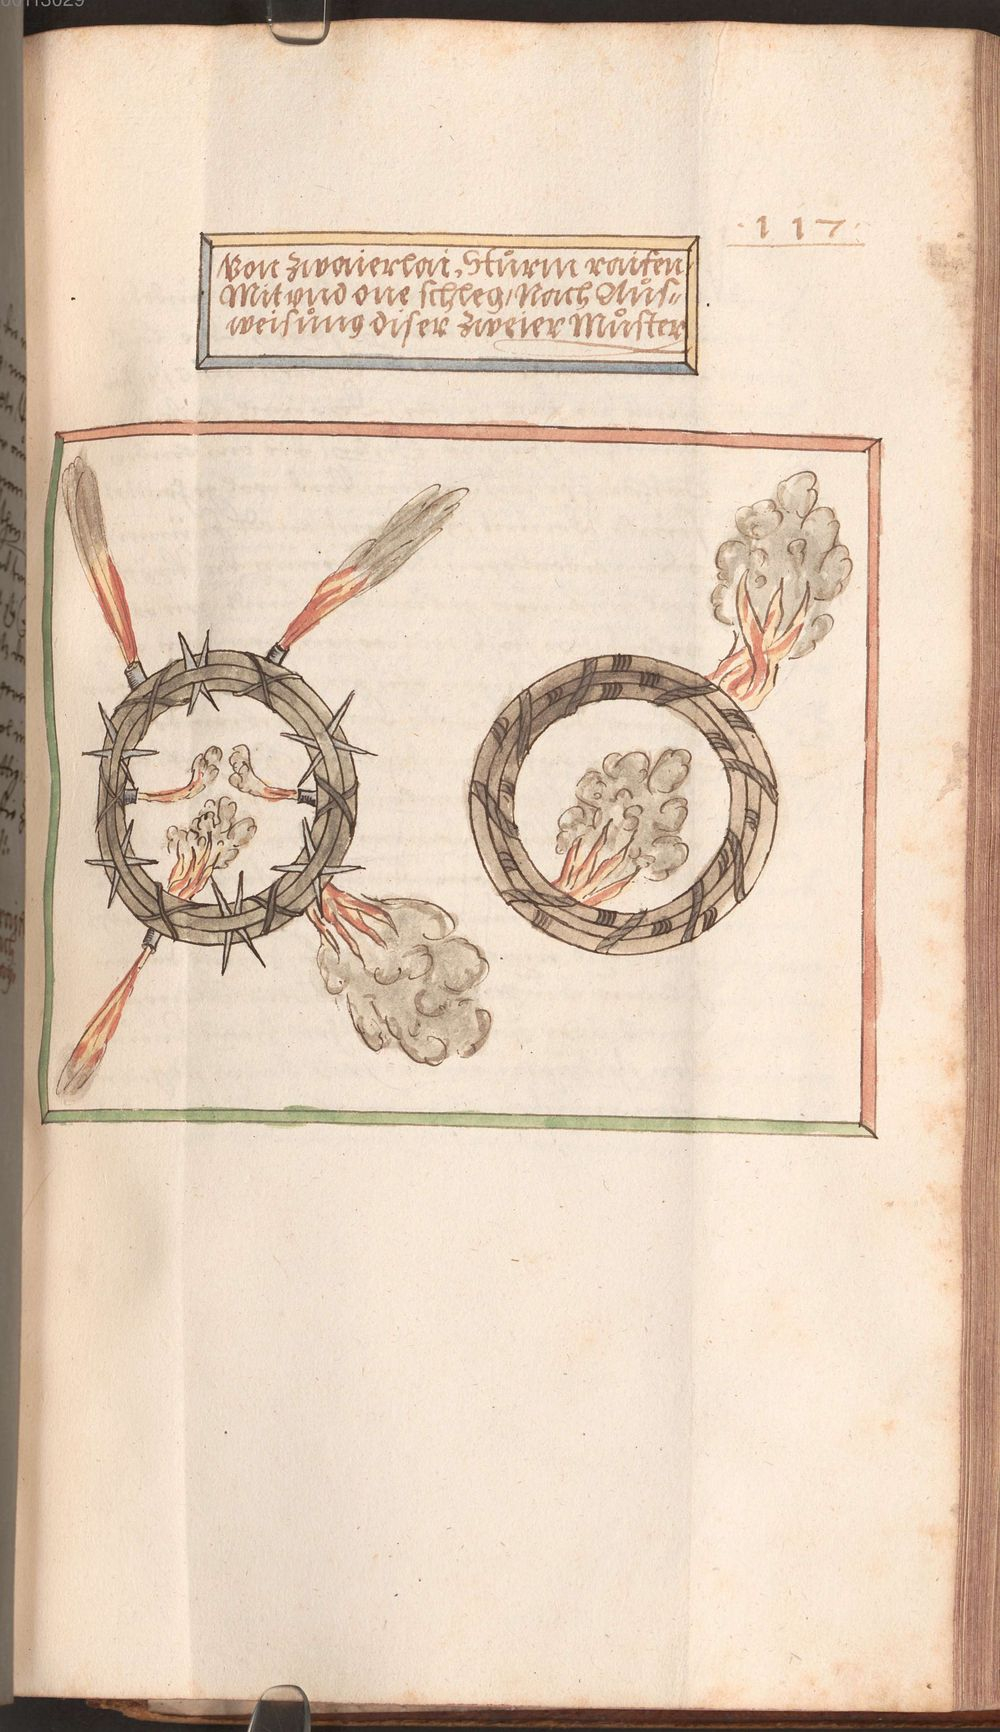 00113029
·117·
Von Zwaierlai, Stůrm raifen
Mit vnd one schleg/Nach Aůs„
weisůng diser zweier Můster